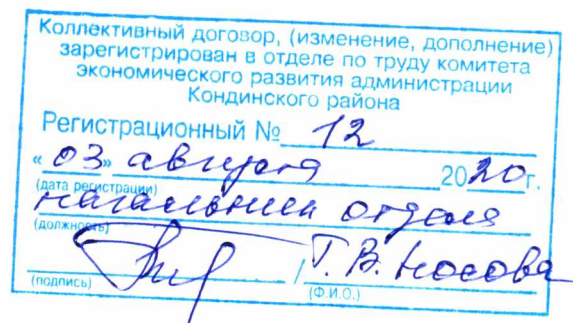 Коллективный договор, (изменение, дополнение)
зарегистрирован в отделе по труду комитета
экономического развития администрации
Кондинского района
Регистрационный № 12
«03» августа 2020г.
(дата регистрации)
начальник отдела
(должность)
/ Т. В. Носова
(подпись) (Ф.И.О.)